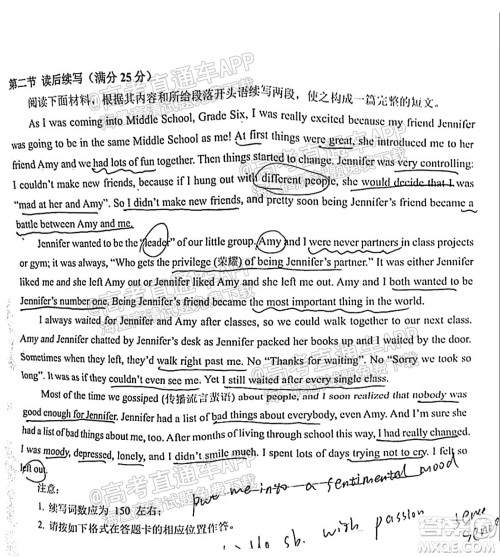 第二节 读后续写（满分 25 分）
阅读下面材料，根据其内容和所给段落开头语续写两段，使之构成一篇完整的短文。
As I was coming into Middle School, Grade Six, I was really excited because my friend Jennifer
was going to be in the same Middle School as me! At first things were great, she introduced me to her
friend Amy and we had lots of fun together. Then things started to change. Jennifer was very controlling:
I couldn't make new friends, because if I hung out with different people, she would decide that I was
"mad at her and Amy". So I didn't make new friends, and pretty soon being Jennifer's friend became a
battle between Amy and me.
Jennifer wanted to be the "leader" of our little group. Amy and I were never partners in class projects
or gym; it was always, "Who gets the privilege (荣耀) of being Jennifer's partner." It was either Jennifer
liked me and she left Amy out or Jennifer liked Amy and she left me out. Amy and I both wanted to be
Jennifer's number one. Being Jennifer's friend became the most important thing in the world.
I always waited for Jennifer and Amy after classes, so we could walk together to our next class.
Amy and Jennifer chatted by Jennifer's desk as Jennifer packed her books up and I waited by the door.
Sometimes when they left, they'd walk right past me. No "Thanks for waiting". No "Sorry we took
so long". It was as if they couldn't even see me. Yet I still waited after every single class.
Most of the time we gossiped (传播流言蜚语) about people, and I soon realized that nobody was
good enough for Jennifer. Jennifer had a list of bad things about everybody, even Amy. And I'm sure she
had a list of bad things about me, too. After months of living through school this way, I had really changed.
I was moody, depressed, lonely, and I didn't smile much. I spent lots of days trying not to cry. I felt so
left out.
注意：
put me into a sentimental mood
1. 续写词数应为 150 左右；
2. 请按如下格式在答题卡的相应位置作答。
sb. with passion
高考直通车APP
高考直通车APP
高考直通车APP
高考直通车APP
答案圈
MXQE.COM